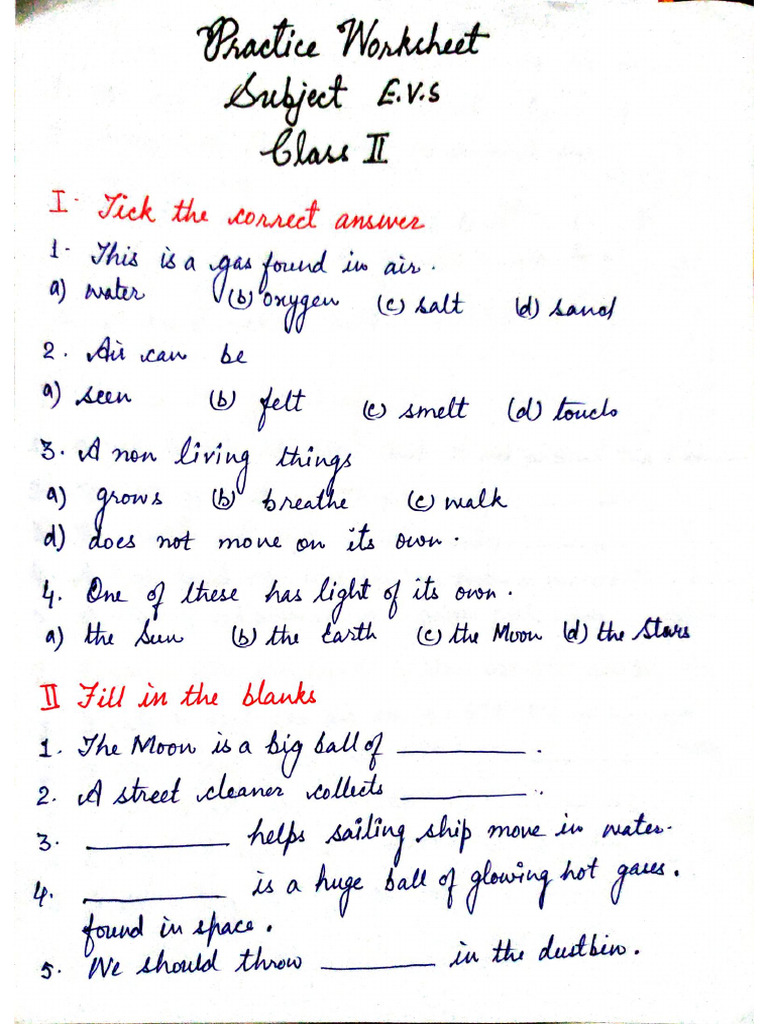 Practice Worksheet
Subject E.V.S
Class II
I. Tick the correct answer
1. This is a gas found in air.
a) water (b) oxygen (c) salt (d) sand
2. Air can be
a) seen (b) felt (c) smelt (d) touch
3. A non living things
a) grows (b) breathe (c) walk
d) does not move on its own.
4. One of these has light of its own.
a) the Sun (b) the Earth (c) the Moon (d) the Stars
II Fill in the blanks
1. The Moon is a big ball of __________.
2. A street cleaner collects __________.
3. __________ helps sailing ship move in water.
4. __________ is a huge ball of glowing hot gases.
found in space.
5. We should throw __________ in the dustbin.